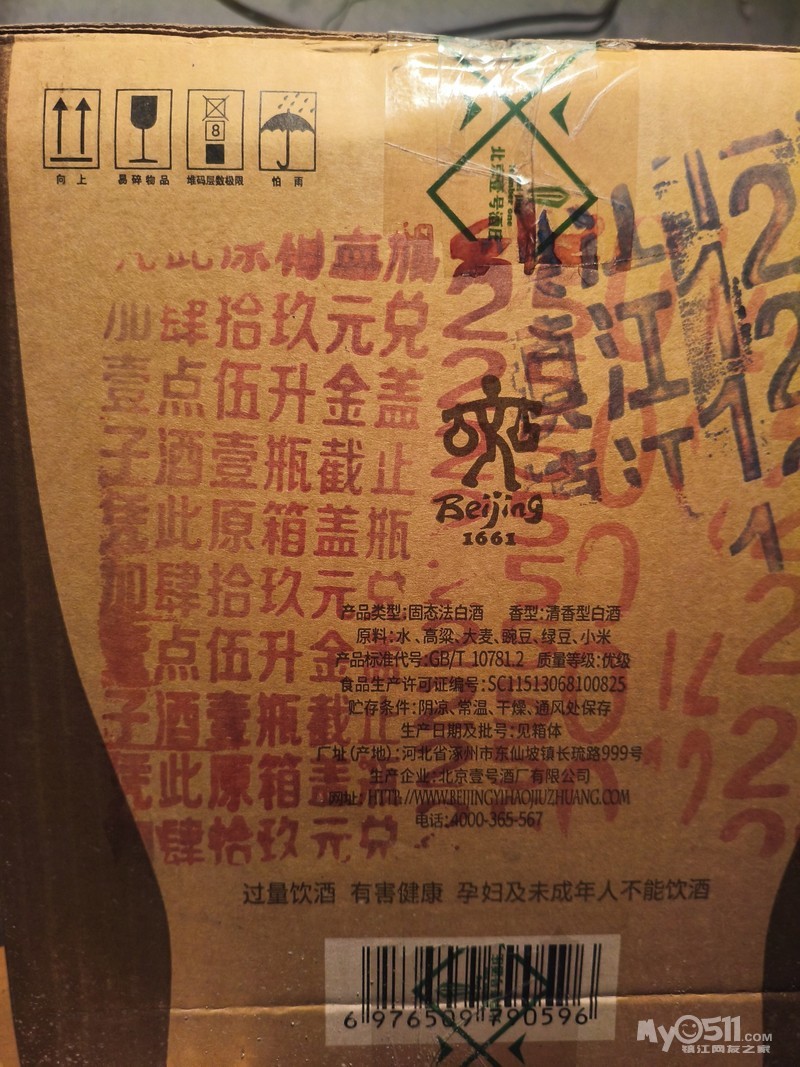 8
向上
易碎物品
堆码层数极限
怕雨
北京壹号酒庄
凭此原箱盖瓶
加肆拾玖元兑
壹点伍升金盖
子酒壹瓶截止
凭此原箱盖瓶
加肆拾玖元兑
壹点伍升金
子酒壹瓶截止
凭此原箱盖
加肆拾玖元兑
镇江
Beijing
1661
产品类型:固态法白酒 香型:清香型白酒
原料:水、高粱、大麦、豌豆、绿豆、小米
产品标准代号:GB/T 10781.2 质量等级:优级
食品生产许可证编号:SC11513068100825
贮存条件:阴凉、常温、干燥、通风处保存
生产日期及批号:见箱体
厂址(产地):河北省涿州市东仙坡镇长琉路999号
生产企业:北京壹号酒厂有限公司
网址:HTTP://WWW.BEIJINGYIHAOJIUZHUANG.COM
电话:4000-365-567
过量饮酒 有害健康 孕妇及未成年人不能饮酒
6 976509 790596
My0511.COM
镇江网友之家